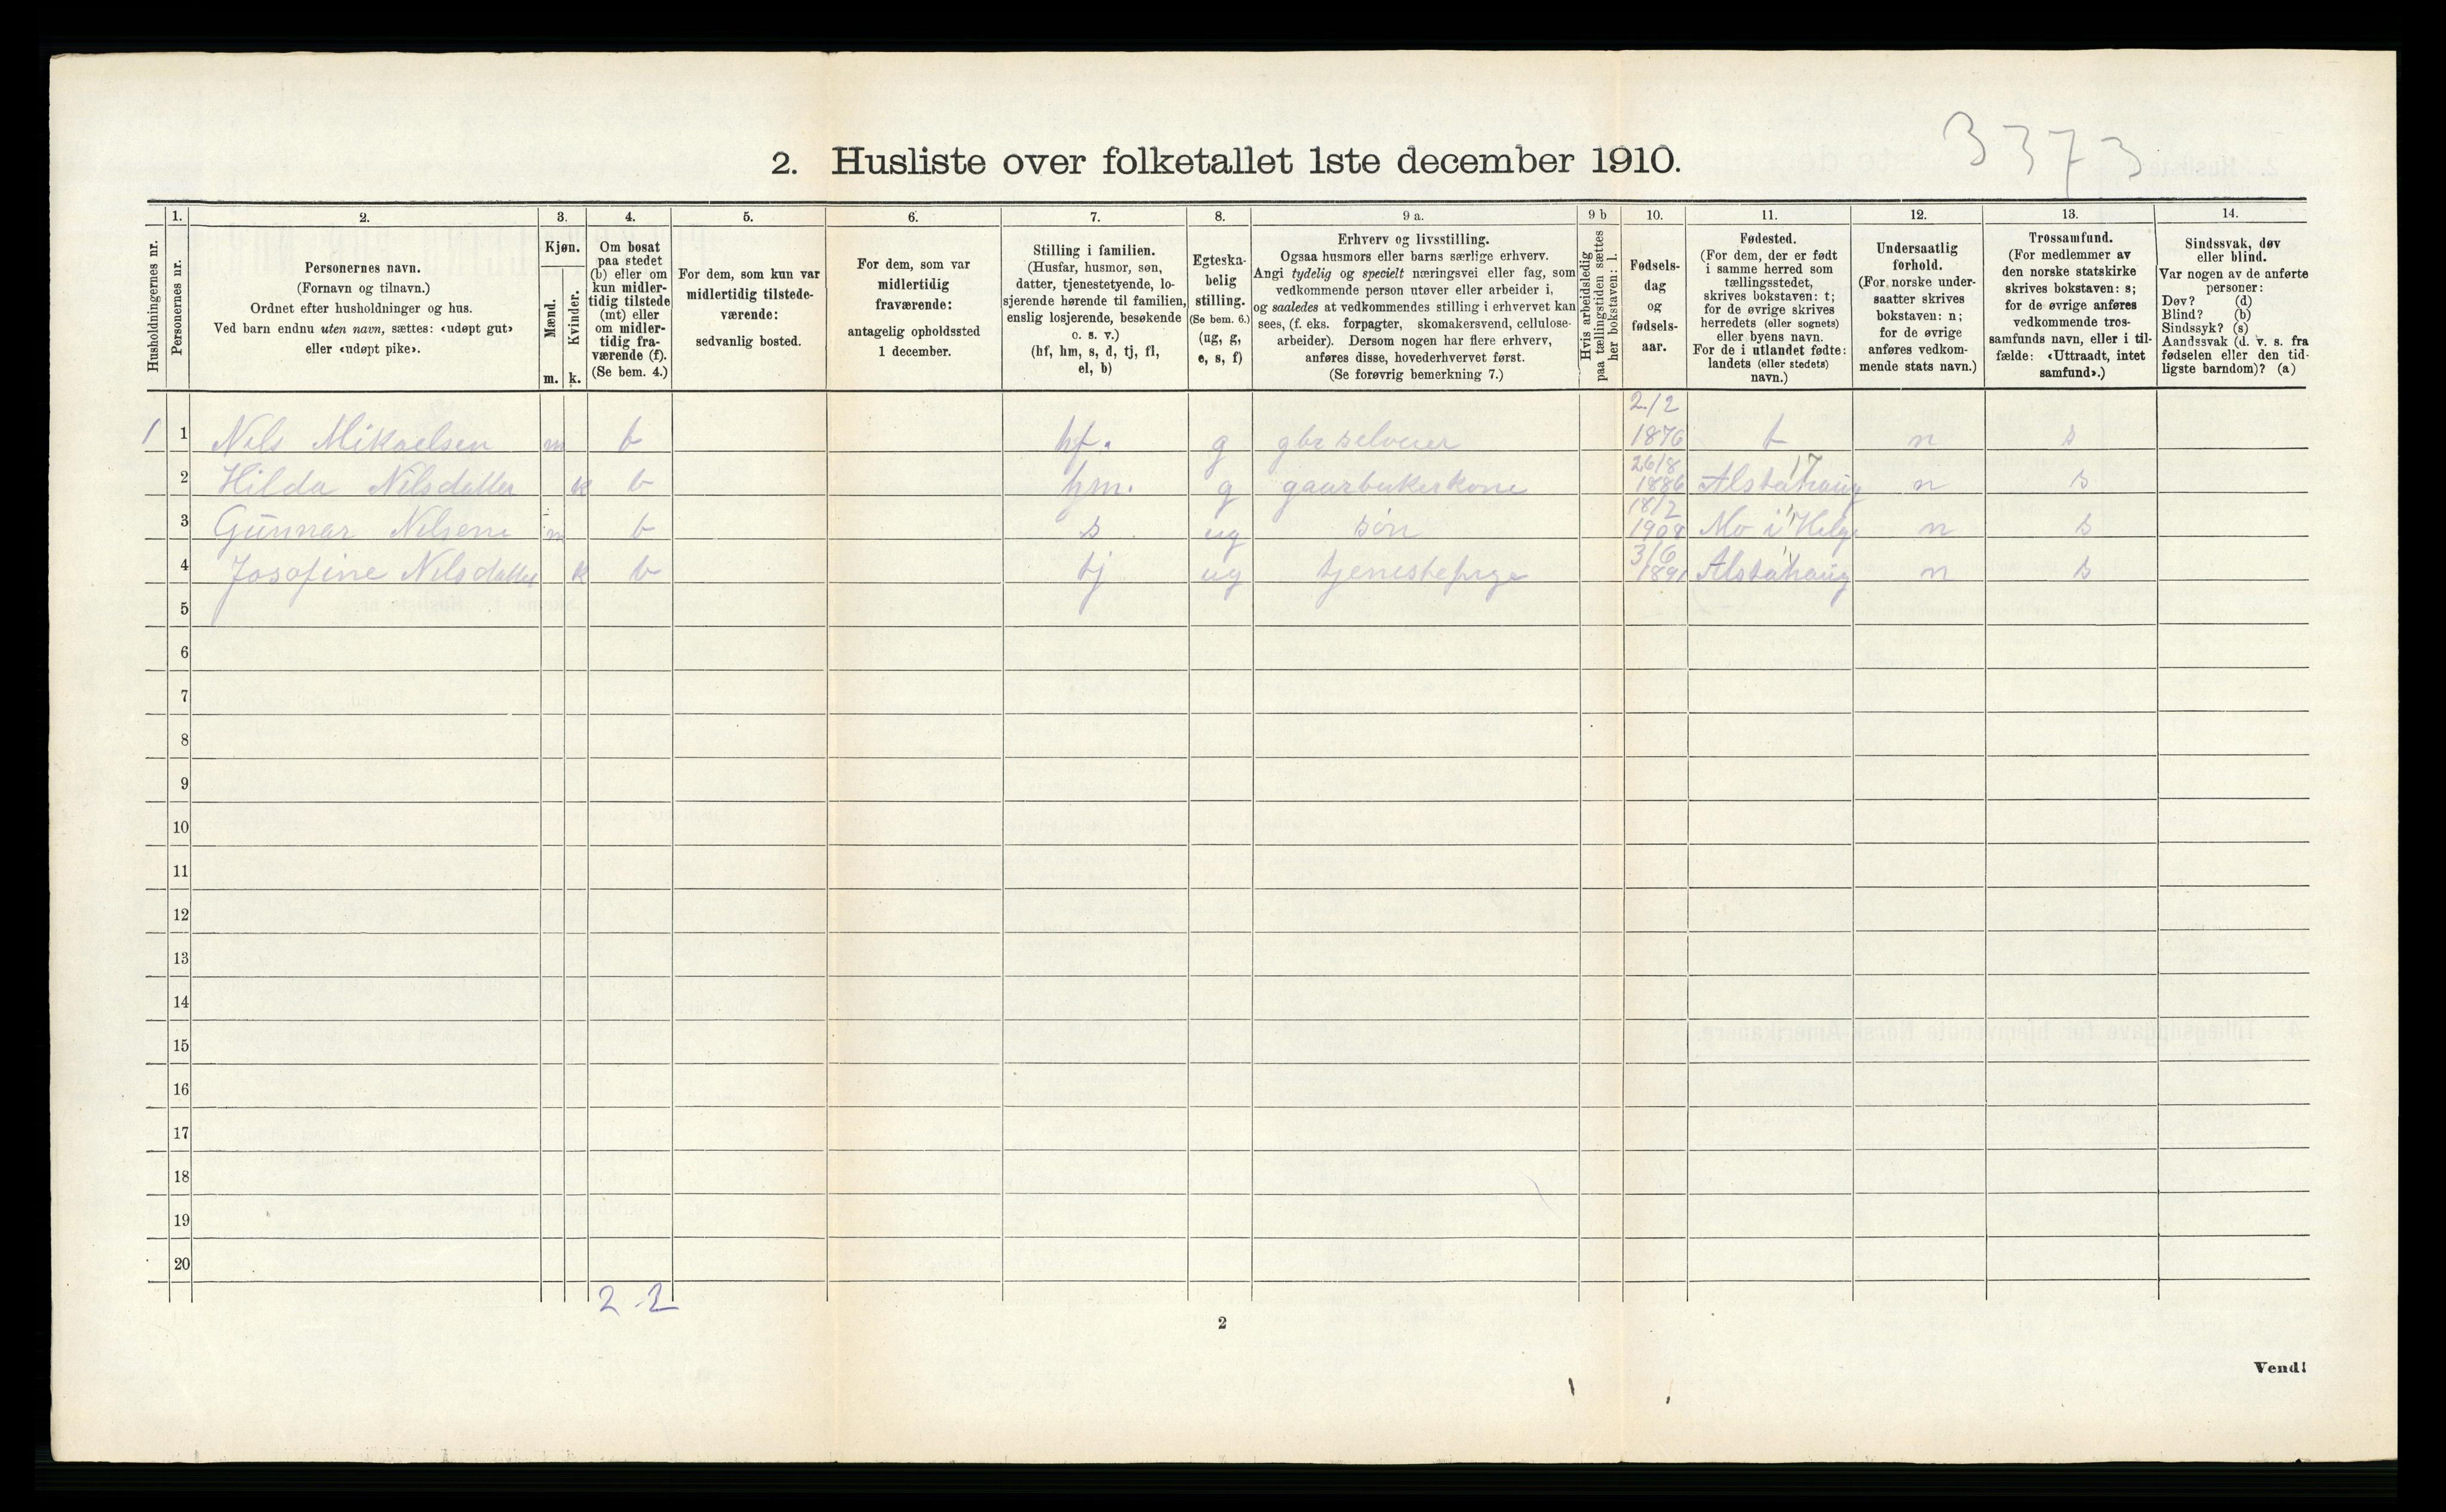 3373
2. Husliste over folketallet 1ste december 1910.
Husholdningernes nr.
1.
Personernes nr.
2.
Personernes navn.
(Fornavn og tilnavn.)
Ordnet efter husholdninger og hus.
Ved barn endnu uten navn, sættes: «udøpt gut»
eller «udøpt pike».
3.
Kjøn.
Mænd.
Kvinder.
m. k.
4.
Om bosat
paa stedet
(b) eller om
kun midler-
tidig tilstede
(mt) eller
om midler-
tidig fra-
værende (f).
(Se bem. 4.)
5.
For dem, som kun var
midlertidig tilstede-
værende:
sedvanlig bosted.
6.
For dem, som var
midlertidig
fraværende:
antagelig opholdssted
1 december.
7.
Stilling i familien.
(Husfar, husmor, søn,
datter, tjenestetyende, lo-
sjerende hørende til familien,
enslig losjerende, besøkende
o. s. v.)
(hf, hm, s, d, tj, fl,
el, b)
8.
Egteska-
belig
stilling.
(Se bem. 6.)
(ug, g,
e, s, f)
9 a.
Erhverv og livsstilling.
Ogsaa husmors eller barns særlige erhverv.
Angi tydelig og specielt næringsvei eller fag, som
vedkommende person utøver eller arbeider i,
og saaledes at vedkommendes stilling i erhvervet kan
sees, (f. eks. forpagter, skomakersvend, cellulose-
arbeider). Dersom nogen har flere erhverv,
anføres disse, hovederhvervet først.
(Se forøvrig bemerkning 7.)
9 b
Hvis arbeidsledig
paa tællingstiden sættes
her bokstaven: l.
10.
Fødsels-
dag
og
fødsels-
aar.
11.
Fødested.
(For dem, der er født
i samme herred som
tællingsstedet,
skrives bokstaven: t;
for de øvrige skrives
herredets (eller sognets)
eller byens navn.
For de i utlandet fødte:
landets (eller stedets)
navn.)
12.
Undersaatlig
forhold.
(For norske under-
saatter skrives
bokstaven: n;
for de øvrige
anføres vedkom-
mende stats navn.)
13.
Trossamfund.
(For medlemmer av
den norske statskirke
skrives bokstaven: s;
for de øvrige anføres
vedkommende tros-
samfunds navn, eller i til-
fælde: «Uttraadt, intet
samfund».)
14.
Sindssvak, døv
eller blind.
Var nogen av de anførte
personer:
Døv? (d)
Blind? (b)
Sindssyk? (s)
Aandssvak (d. v. s. fra
fødselen eller den tid-
ligste barndom)? (a)
1 1 Nils Mikaelsen m b hf. g gbr selveier 2/2 1876 t n s
2 Hilda Nilsdatter k b hm. g gaarbukerkone 26/8 1886 Alstahaug n s
3 Gunnar Nilsen m b s ug søn 18/2 1908 Mo i Helg. n s
4 Josefine Nilsdatter k b tj ug tjenestepige 3/6 1891 Alstahaug n s
5
6
7
8
9
10
11
12
13
14
15
16
17
18
19
20
2 2
2
Vend!